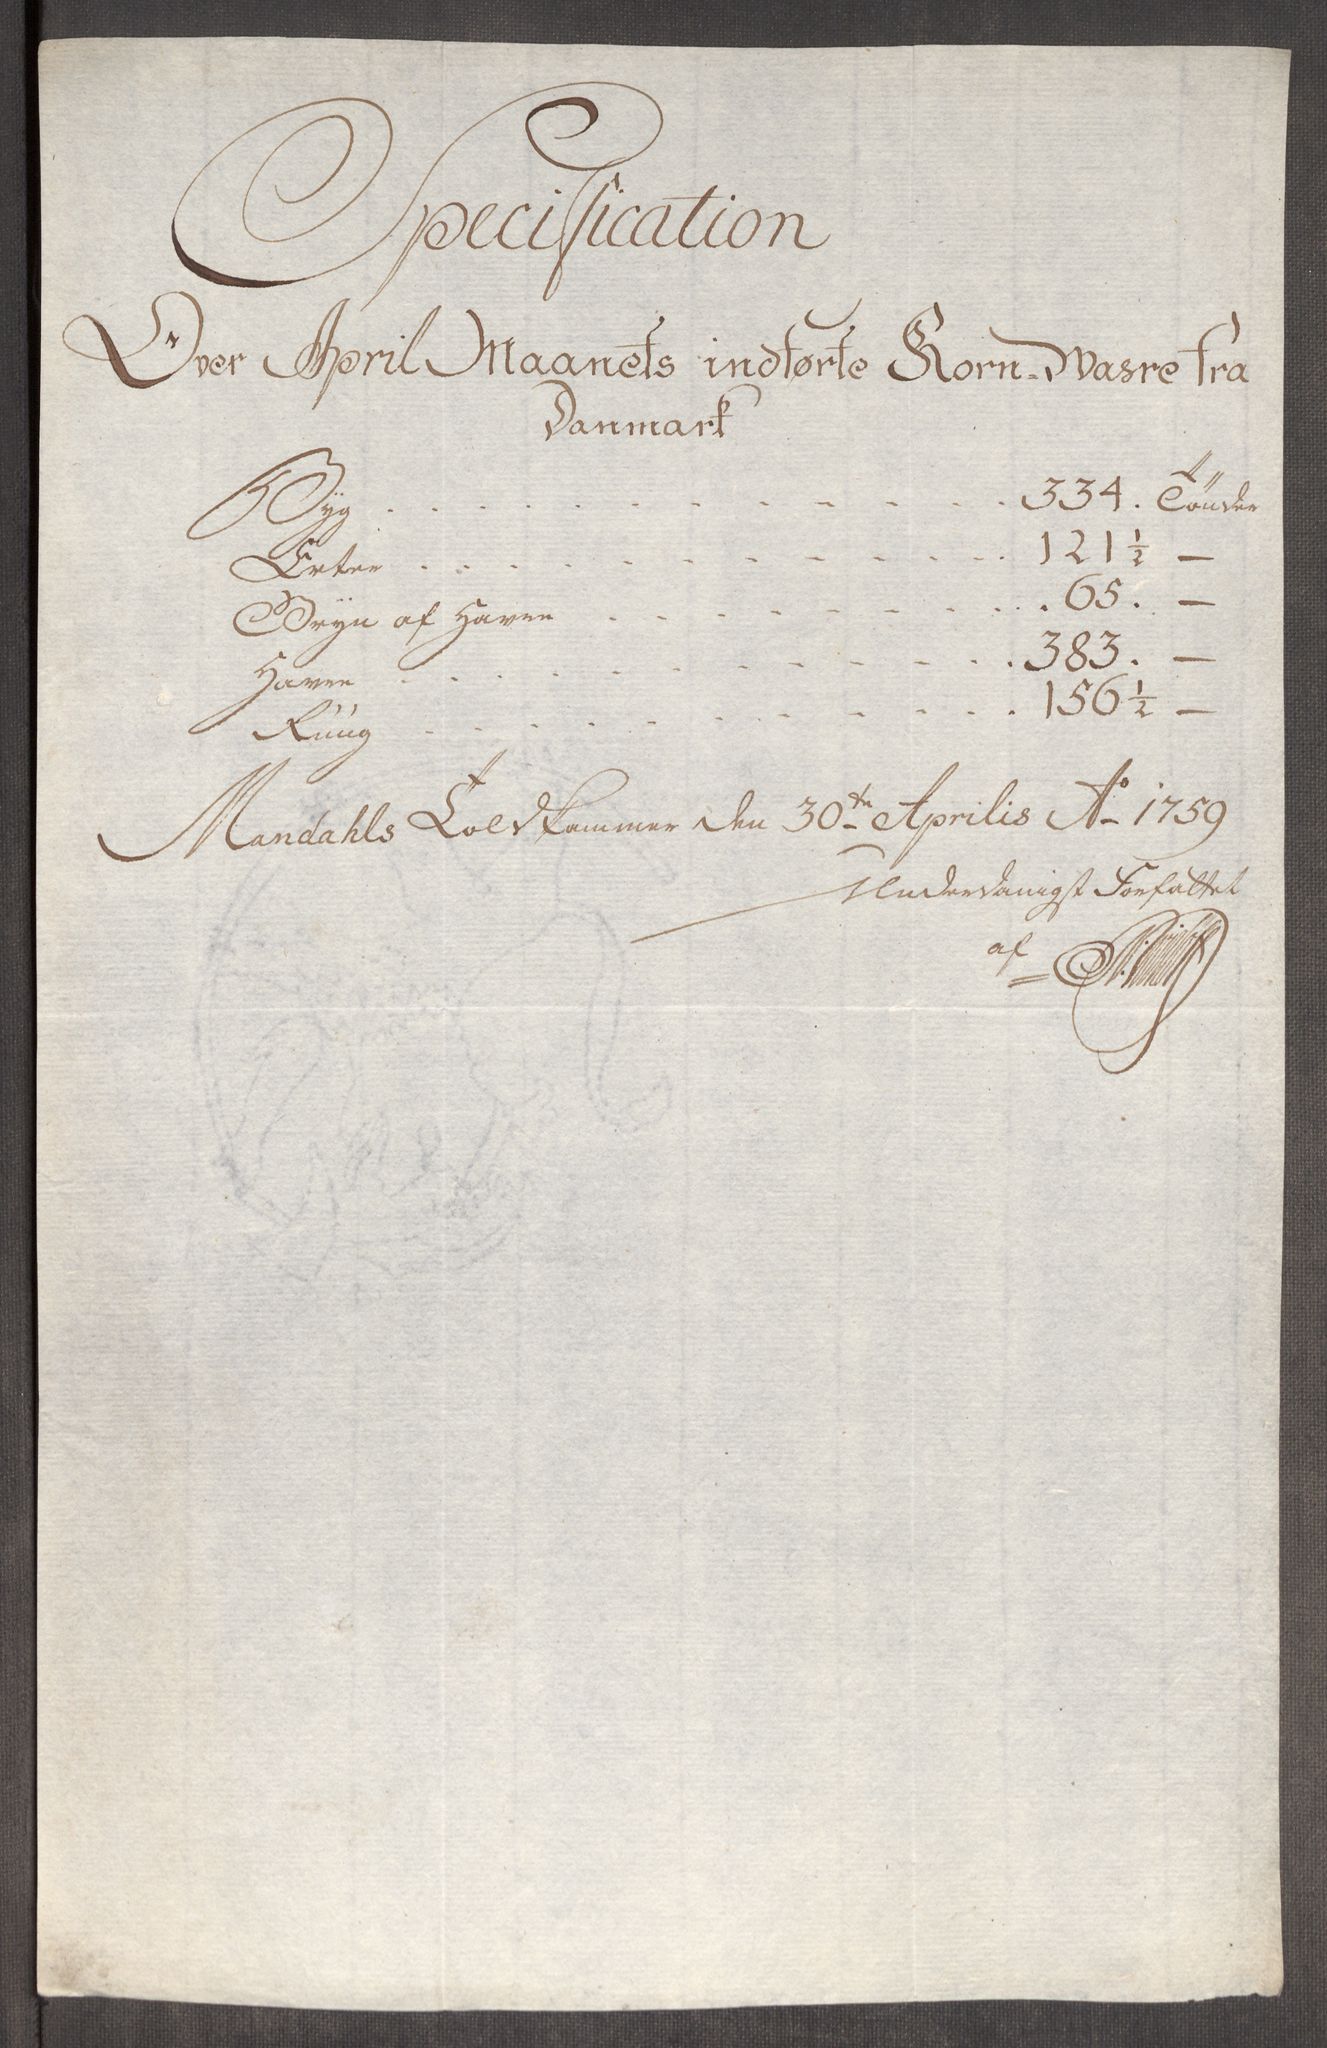 Specification
Over April Maanets indførte Korn-Vasre fra
Danmark
Byg . . . . . . . . . . . 334. Tönder
Erter . . . . . . . . . . . 121½ —
Gryn af Haver . . . . . . . . 65. —
Haver . . . . . . . . . . . 383. —
Rüüg . . . . . . . . . . . 156½ —
Mandahls Toldkammer den 30te Aprilis Ao 1759
Underdanigst Forfattet
af